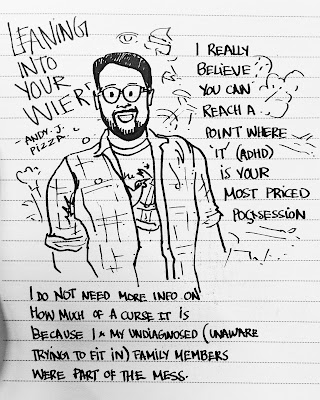 LEANING
INTO
YOUR
WIERD
- ANDY. J.
PIZZA -
I REALLY
BELIEVE
YOU CAN
REACH A
POINT WHERE
'IT' (ADHD)
IS YOUR
MOST PRICED
POCKSESSION
I DO NOT NEED MORE INFO ON
HOW MUCH OF A CURSE IT IS
BECAUSE I & MY UNDIAGNOSED (UNAWARE
TRYING TO FIT IN) FAMILY MEMBERS
WERE PART OF THE MESS.